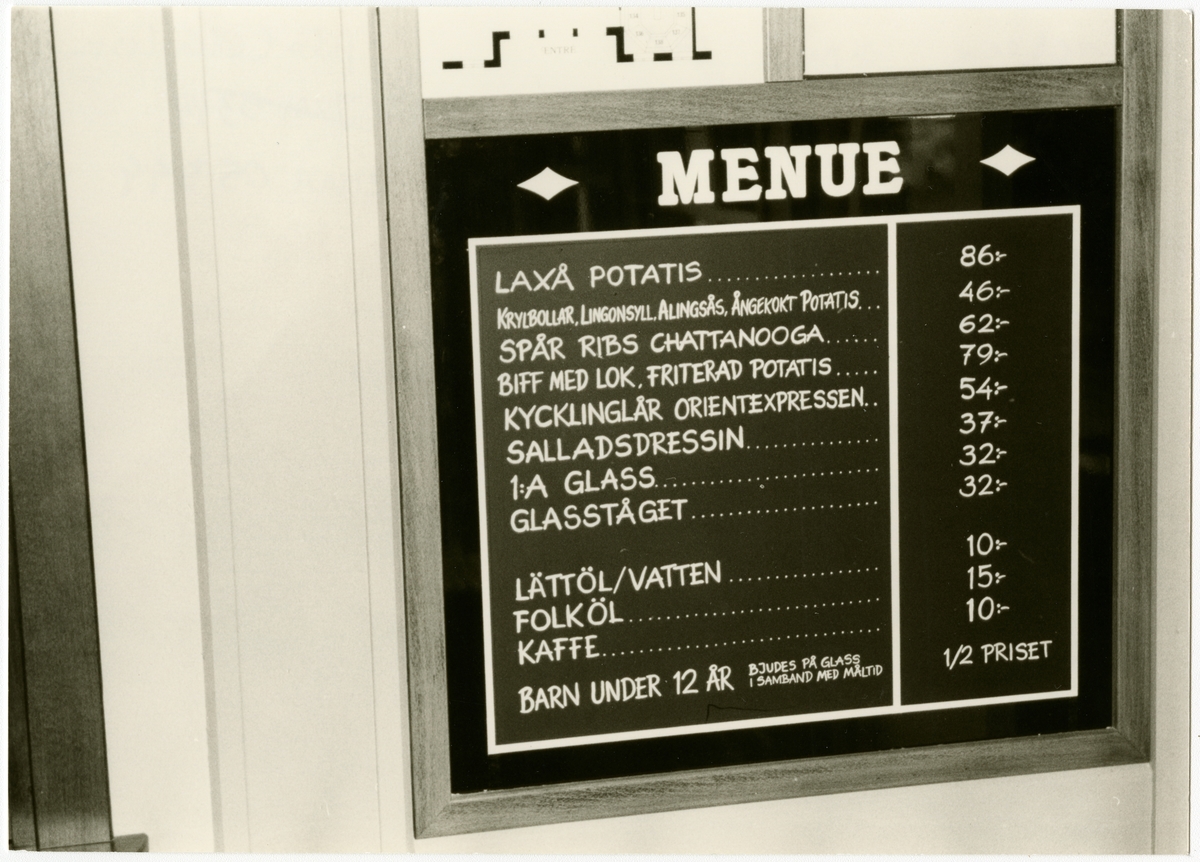 ENTRE
MENUE
LAXÅ POTATIS.................... 86:-
KRYLBOLLAR, LINGONSYLL, ALINGSÅS, ÅNGEKOKT POTATIS... 46:-
SPÅR RIBS CHATTANOOGA...... 62:-
BIFF MED LOK, FRITERAD POTATIS ..... 79:-
KYCKLINGLÅR ORIENTEXPRESSEN.. 54:-
SALLADSDRESSIN............... 37:-
1:A GLASS......................... 32:-
GLASSTÅGET..................... 32:-
LÄTTÖL/VATTEN ................ 10:-
FOLKÖL............................ 15:-
KAFFE.............................. 10:-
BARN UNDER 12 ÅR BJUDES PÅ GLASS 1/2 PRISET
I SAMBAND MED MÅLTID